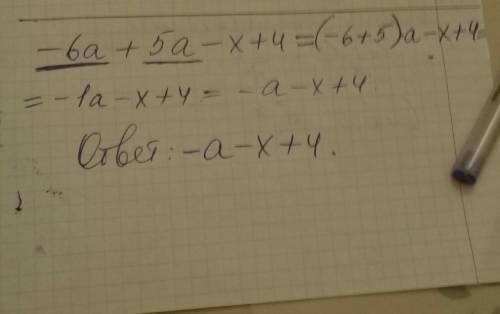 -6a + 5a - x + 4 = (-6+5)a - x + 4 =
= -1a - x + 4 = -a - x + 4
Ответ: -a - x + 4.